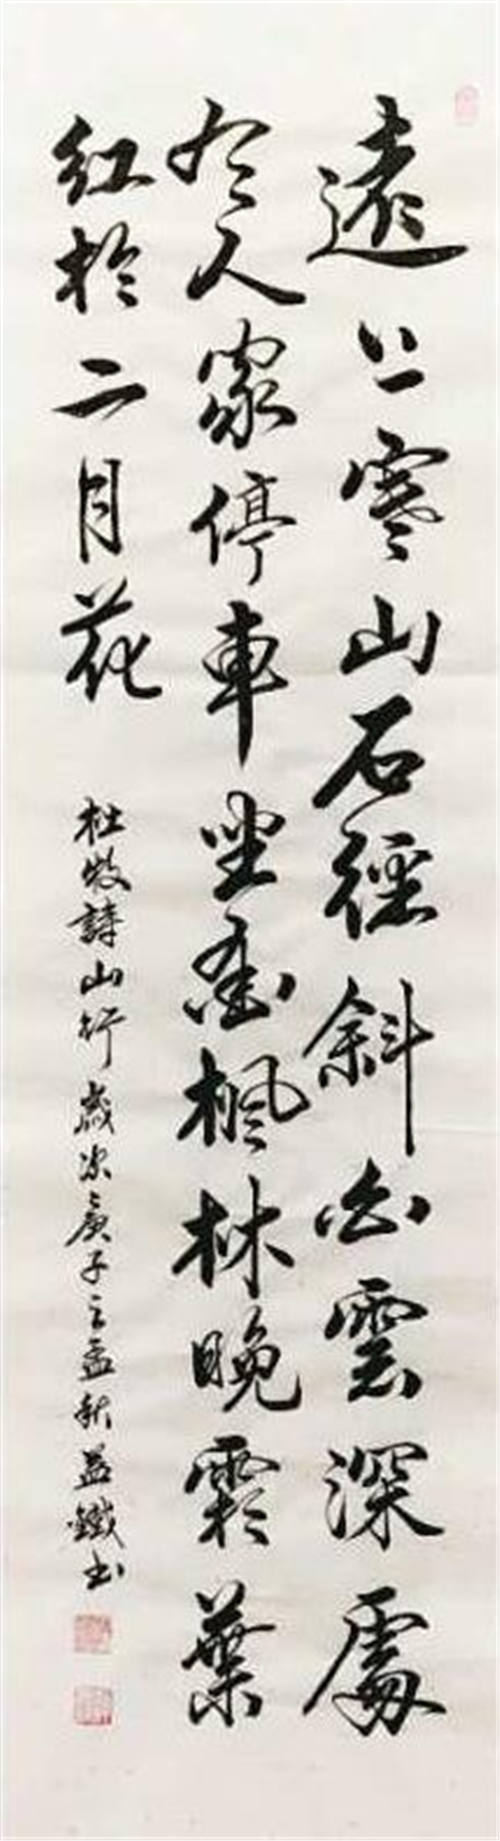 遠上寒山石徑斜白雲深處
有人家停車坐愛楓林晚霜葉
紅於二月花
杜牧詩山行歲次庚子之孟秋益鐵書